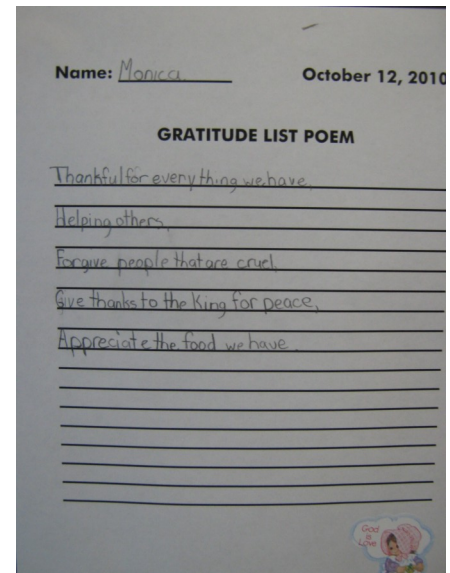 Name: Monica
October 12, 2010
GRATITUDE LIST POEM
Thankful for everything we have,
Helping others,
Forgive people that are cruel.
Give thanks to the King for peace,
Appreciate the food we have.
God
is
Love